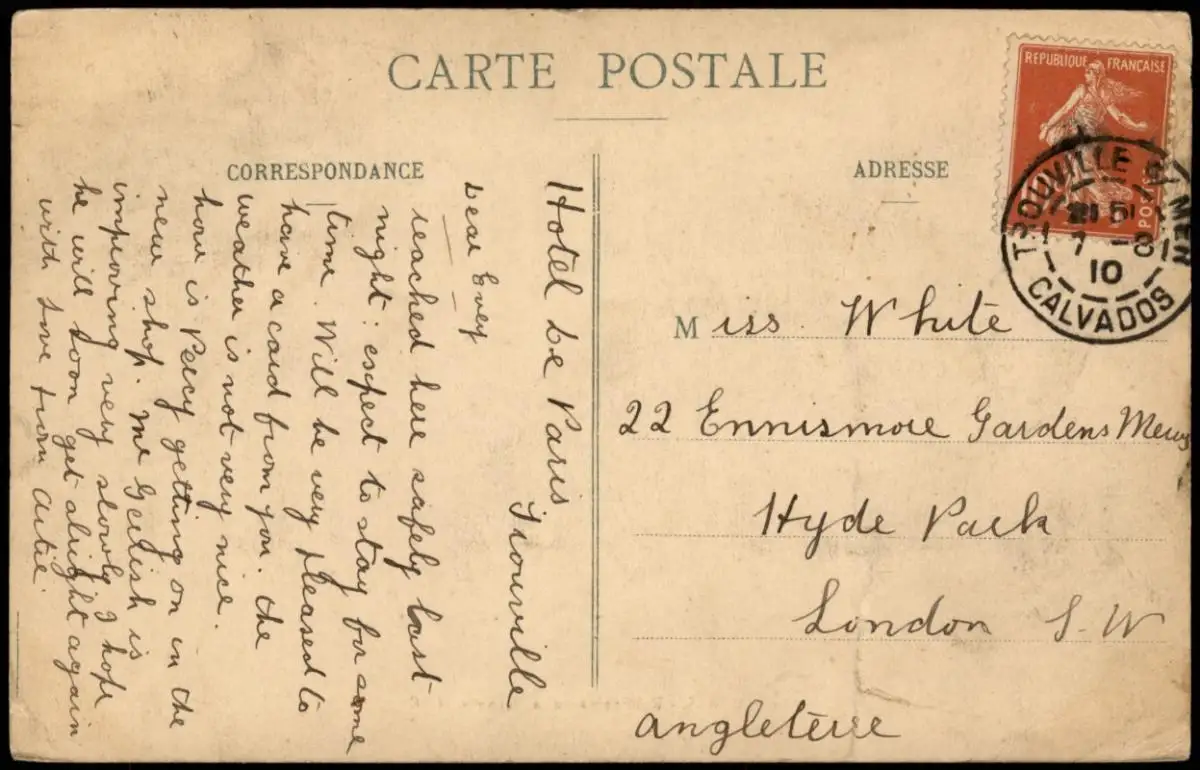 CARTE POSTALE
CORRESPONDANCE
Hotel de Paris
Trouville
Dear Evey
reached here safely last
night: expect to stay for some
time. Will be very pleased to
have a card from you. the
weather is not very nice.
how is Percy getting on in the
new shop. Mr Gerrish is
improving very slowly I hope
he will soon get alright again
with love from Artie
ADRESSE
REPUBLIQUE FRANÇAISE
POSTES
TROUVILLE S/ MER
7 - 8
10
CALVADOS
Miss. White
22 Ennismore Gardens Mews
Hyde Park
London S.W
Angleterre